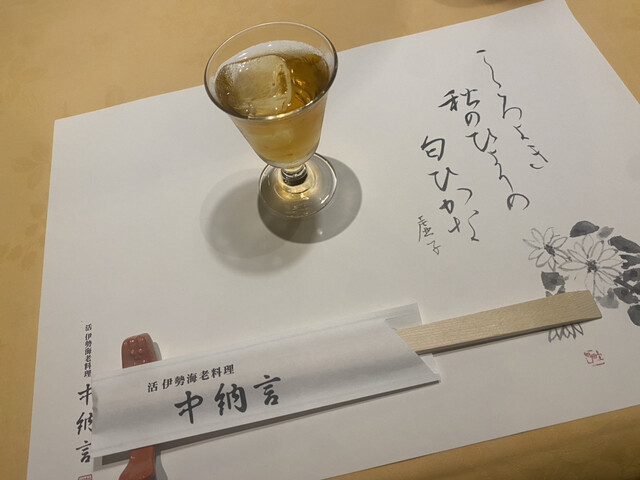 こころよき
秋のひよりの
匂ひかな
虚子
活伊勢海老料理
中納言
活伊勢海老料理
中納言